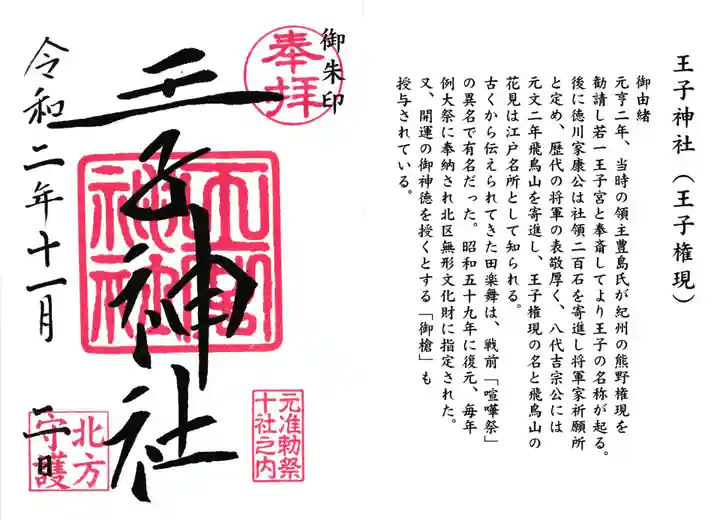 王子神社(王子権現)
御由緒
元亨二年、当時の領主豊島氏が紀州の熊野権現を
勧請し若一王子宮と奉斎してより王子の名称が起る。
後に徳川家康公は社領二百石を寄進し将軍家祈願所
と定め、歴代の将軍の表敬厚く、八代吉宗公には
元文二年飛鳥山を寄進し、王子権現の名と飛鳥山の
花見は江戸名所として知られる。
古くから伝えられてきた田楽舞は、戦前「喧嘩祭」
の異名で有名だった。昭和五十九年に復元、毎年
例大祭に奉納され北区無形文化財に指定された。
又、開運の御神徳を授くとする「御槍」も
授与されている。
御朱印
奉拝
王子神社
王子神社
元准勅祭
十社之内
令和二年十一月
一日
北方
守護